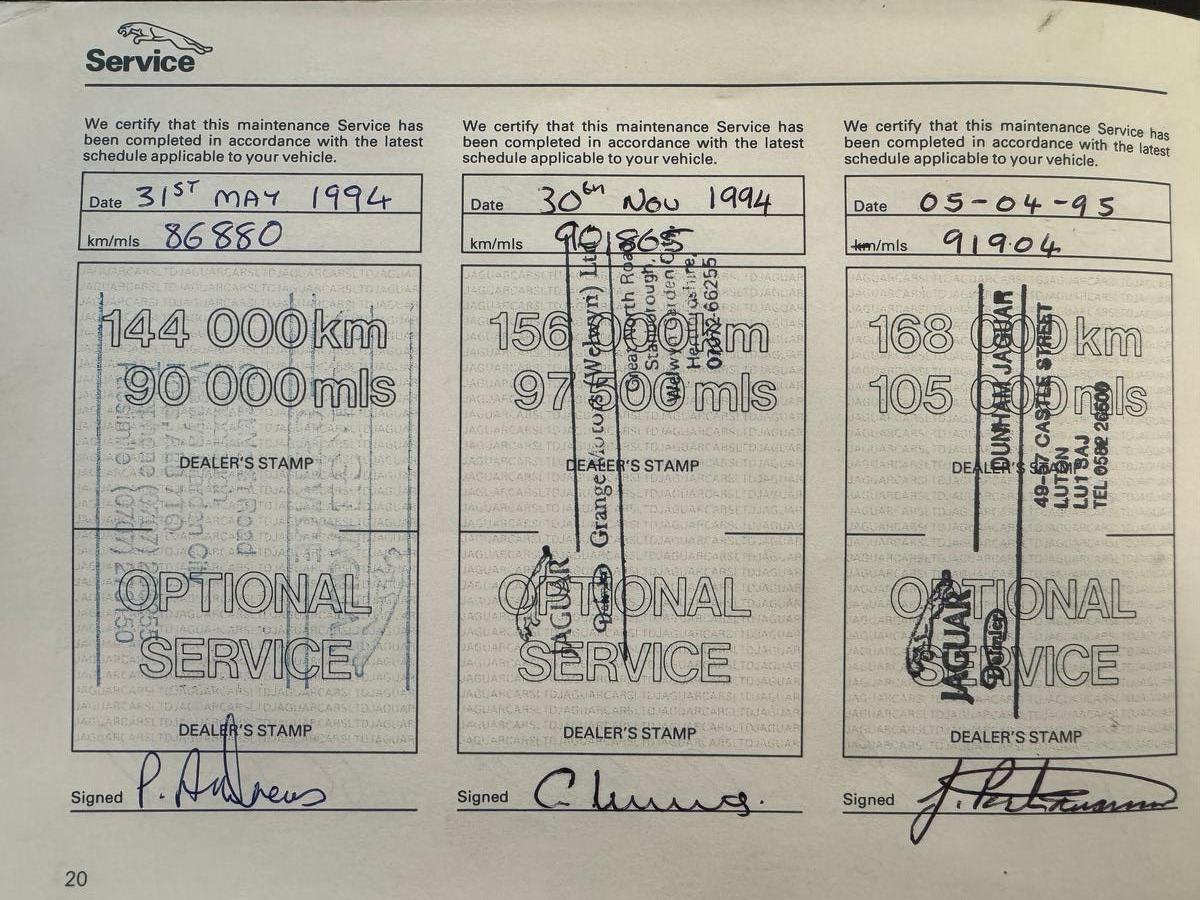 Service
We certify that this maintenance Service has
been completed in accordance with the latest
schedule applicable to your vehicle.
Date 31ST MAY 1994
km/mls 86880
144 000km
90 000mls
DEALER'S STAMP
OPTIONAL
SERVICE
DEALER'S STAMP
Signed P. Andrews
We certify that this maintenance Service has
been completed in accordance with the latest
schedule applicable to your vehicle.
Date 30th Nov 1994
km/mls 901865
156 000km
97 000mls
DEALER'S STAMP
Grange Motors (Welwyn) Ltd
Great North Road
Stanborough,
Welwyn Garden City
Hertfordshire,
07072-66255
JAGUAR
Daimler
OPTIONAL
SERVICE
DEALER'S STAMP
Signed
We certify that this maintenance Service has
been completed in accordance with the latest
schedule applicable to your vehicle.
Date 05-04-95
km/mls 91904
168 000km
105 000mls
DEALER'S STAMP
DUNHAM JAGUAR
49-57 CASTLE STREET
LUTON
LU1 3AJ
TEL 0582
JAGUAR
Daimler
OPTIONAL
SERVICE
DEALER'S STAMP
Signed
20